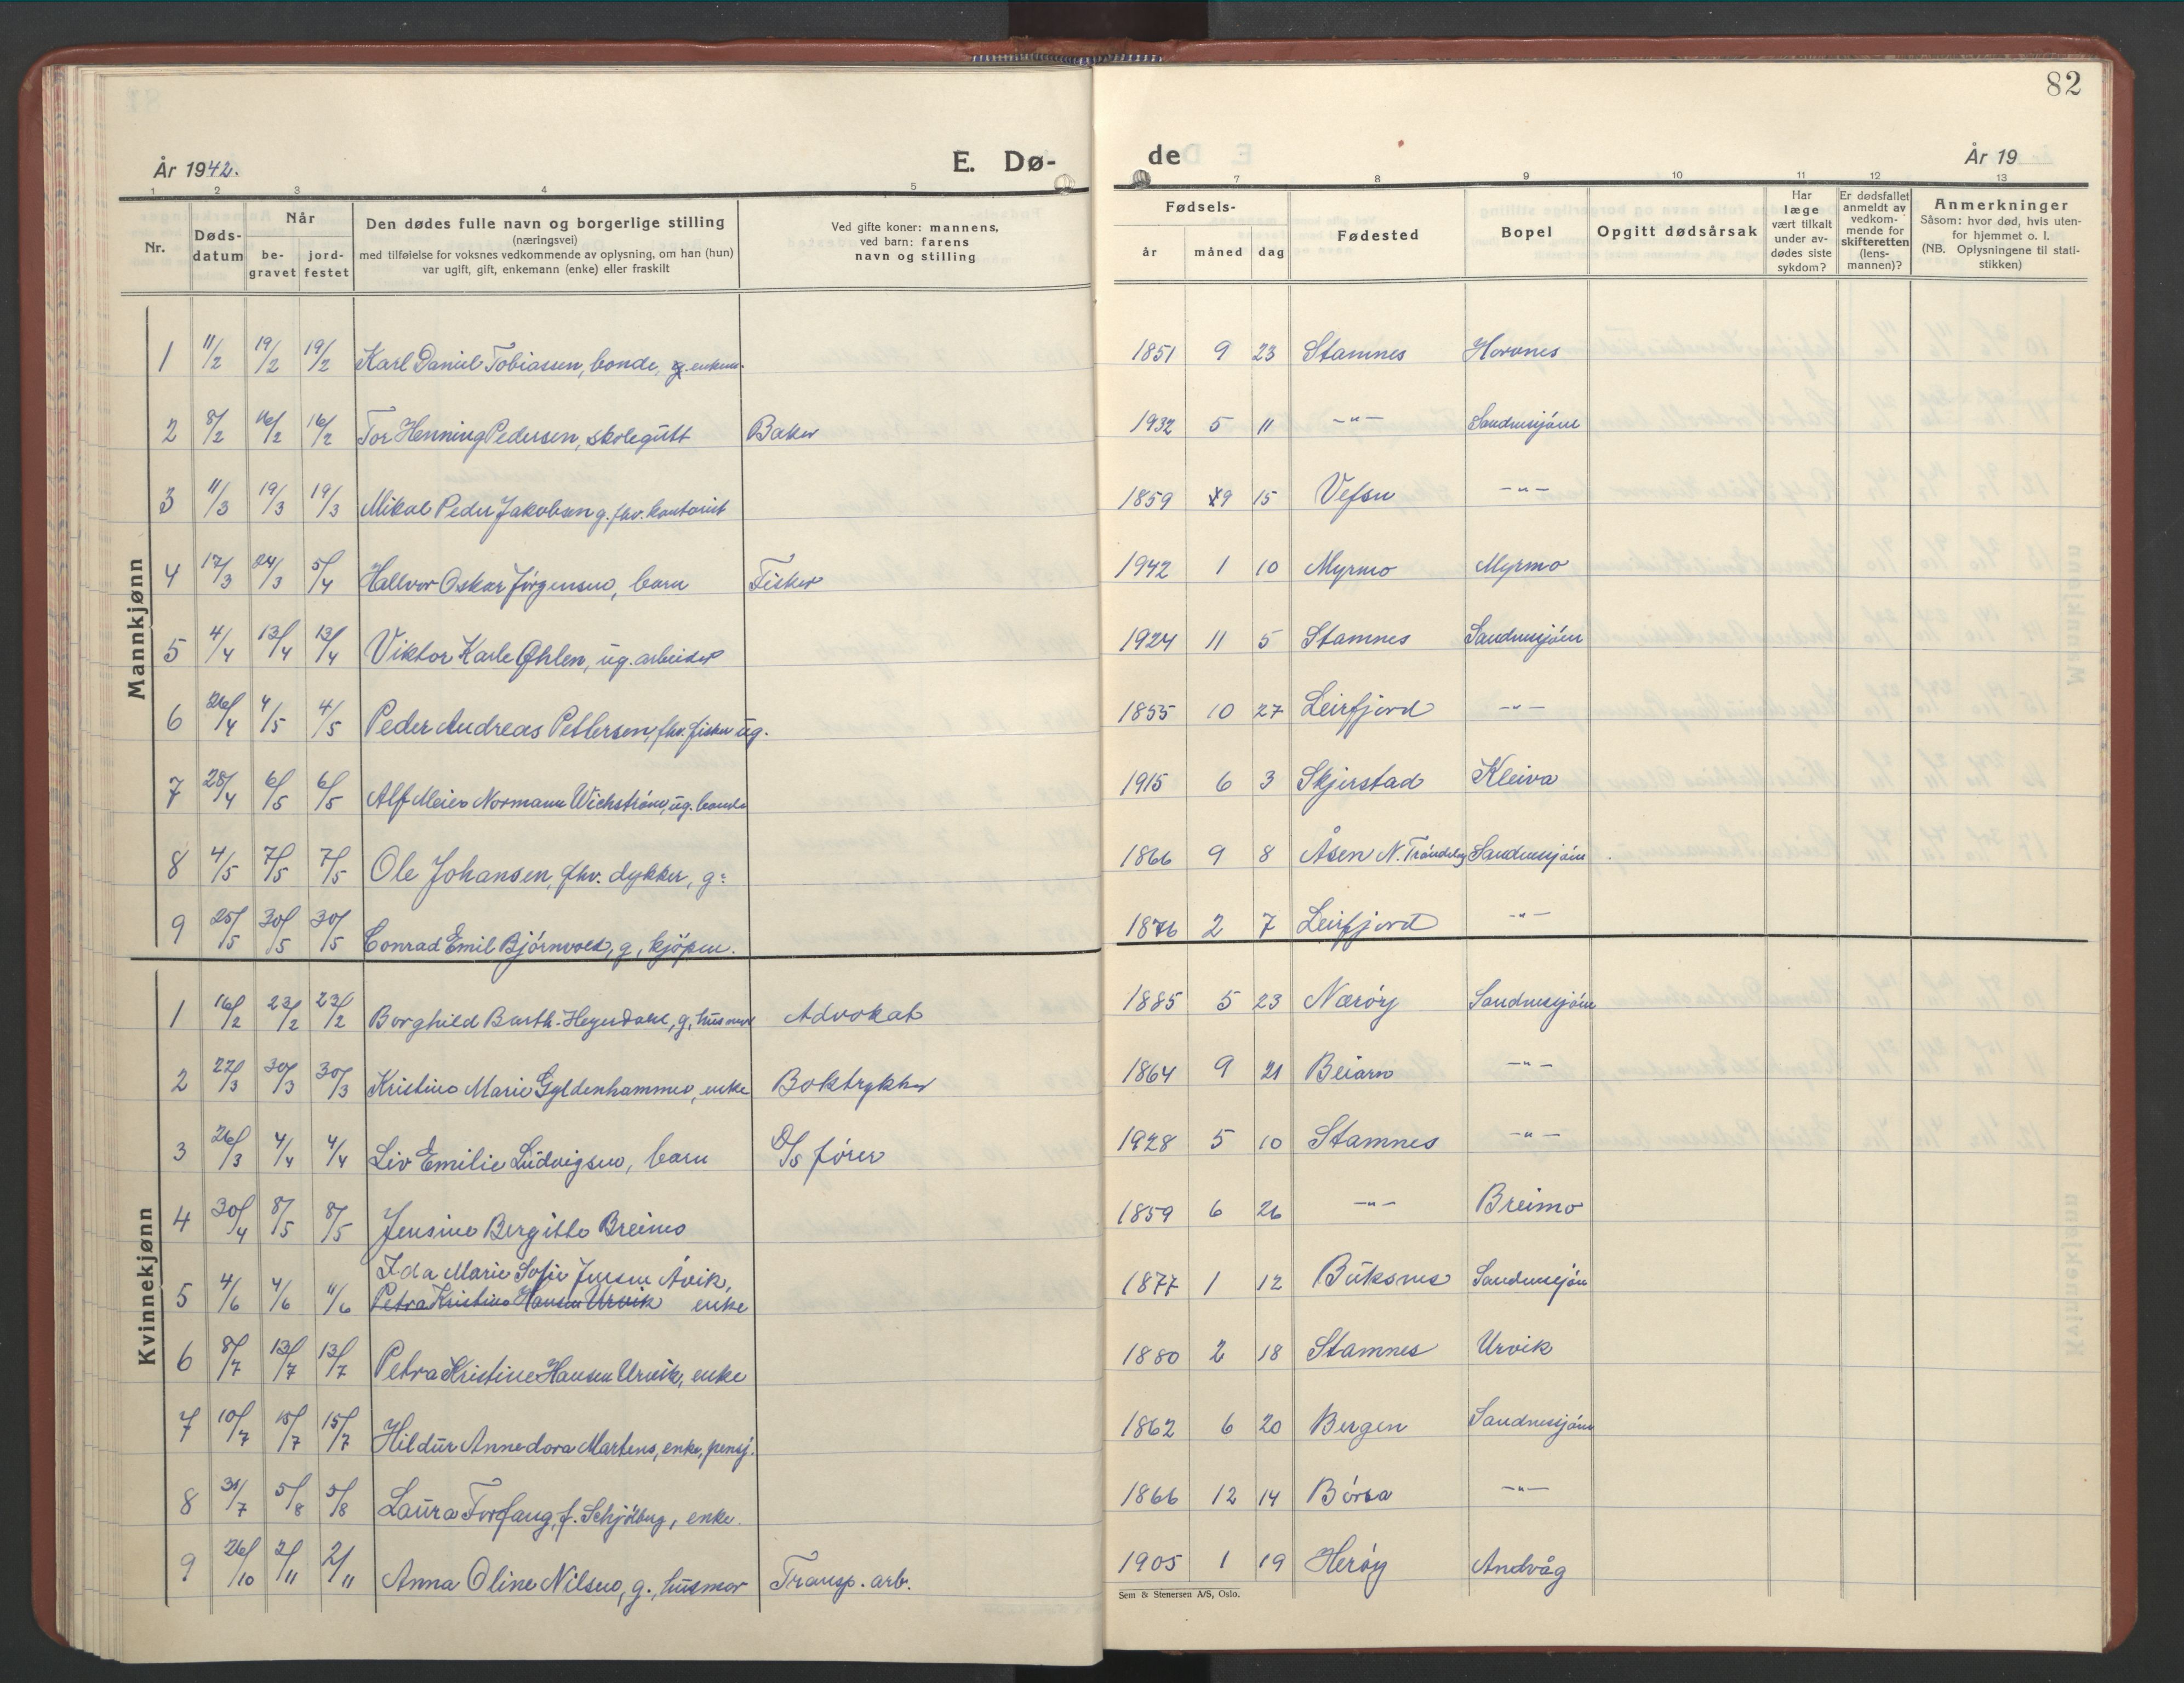 82
År 1942. E. Dø- de År 19
1 2 3 4 5 7 8 9 10 11 12 13
Nr.
Døds-
datum
Når
be-
gravet
jord-
festet
Den dødes fulle navn og borgerlige stilling
(næringsvei)
med tilføielse for voksnes vedkommende av oplysning, om han (hun)
var ugift, gift, enkemann (enke) eller fraskilt
Ved gifte koner: mannens,
ved barn: farens
navn og stilling
Fødsels-
år måned dag
Fødested
Bopel
Opgitt dødsårsak
Har
læge
vært tilkalt
under av-
dødes siste
sykdom?
Er dødsfallet
anmeldt av
vedkom-
mende for
skifteretten
(lens-
mannen)?
Anmerkninger
Såsom: hvor død, hvis uten-
for hjemmet o. l.
(NB. Oplysningene til stati-
stikken)
Mannkjønn
1 11/2 19/2 19/2 Karl Daniel Tobiassen, bonde, g. enkem. 1851 9 23 Stamnes Horvnes
2 8/2 16/2 16/2 Tor Henning Pedersen, skolegutt Baker 1932 5 11 -"- Sandnessjøen
3 11/3 19/3 19/3 Mikal Peder Jakobsen g. fhv. kontorist 1859 9 15 Vefsn -"-
4 17/3 24/3 5/4 Hallvor Oskar Jörgensen, barn Fisker 1942 1 10 Myrmo Myrmo
5 4/4 13/4 13/4 Viktor Karle Øhlen, ug. arbeider 1924 11 5 Stamnes Sandnessjøen
6 26/4 4/5 4/5 Peder Andreas Pettersen, fhv. fisker ug. 1855 10 27 Leirfjord -"-
7 28/4 6/5 6/5 Alf Meier Normann Wichstrøm, ug. bonde 1915 6 3 Skjerstad Kleiva
8 4/5 7/5 7/5 Ole Johansen, fhv. dykker, g. 1866 9 8 Åsen N. Tröndelag Sandnessjøen
9 25/5 30/5 30/5 Conrad Emil Björnvold, g, kjöpm. 1876 2 7 Leirfjord -"-
Kvinnekjønn
1 16/2 23/2 23/2 Borghild Barth-Heyerdahl, g, husmor Advokat 1885 5 23 Nærøy Sandnessjøen
2 22/3 30/3 30/3 Kristine Marie Gyldenhammer, enke Boktrykker 1864 9 21 Beiarn -"-
3 26/3 4/4 4/4 Liv Emilie Ludvigsen, barn D/s fører 1928 5 10 Stamnes -"-
4 30/4 8/5 8/5 Jensine Bergitte Breimo 1859 6 26 -"- Breimo
Ida Marie Sofie Jensen Åvik,
5 4/6 4/6 11/6 Petra Kristine Hansen Urvik enke 1877 1 12 Buksnes Sandnessjøen
6 8/7 13/7 13/7 Petra Kristine Hansen Urvik, enke 1880 2 18 Stamnes Urvik
7 10/7 15/7 15/7 Hildur Annedora Martens, enke, pensj. 1862 6 20 Bergen Sandnessjøen
8 31/7 5/8 5/8 Laura Forfang, f. Schjölberg, enke. 1866 12 14 Börsa -"-
9 26/10 2/11 2/11 Anna Oline Nilsen, g., husmor Transp. arb. 1905 1 19 Heröy Andvåg
Sem & Stenersen A/S, Oslo.